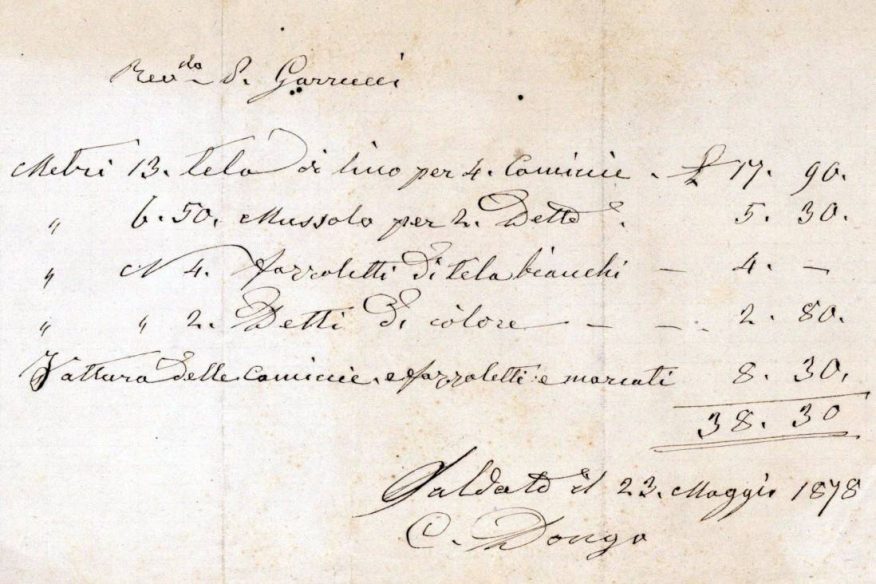 Rev.do P. Garrucci
Metri 13. tela di lino per 4. Camicie . £ 17. 90.
" 6. 50. Mussolo per 2. Dette . 5. 30.
" N 4. fazzoletti di tela bianchi — 4. —
" " 2. Detti di colore — — . 2. 80.
Fattura delle camicie. e fazzoletti e marcati 8. 30.
38. 30
Saldato il 23. Maggio 1878
C. Dongo